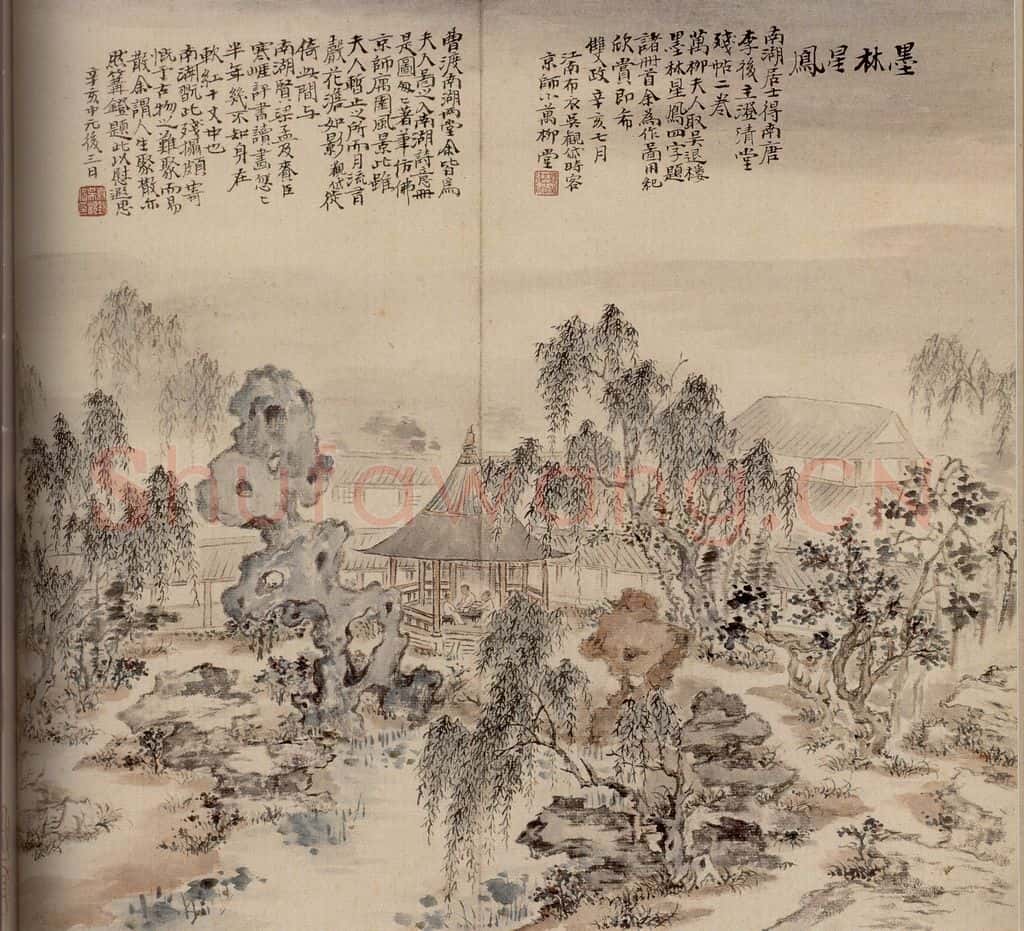 墨林星鳳
南湖居士得南唐
李後主澄清堂
殘帖二卷
萬柳夫人取吳退樓
墨林星鳳四字題
諸冊首余為作圖用紀
欣賞即希
雙政 辛亥七月
江南布衣吳觀岱時客
京師小萬柳堂
曹渡南湖兩堂余皆為
夫人寫之入南湖詩意冊
是圖匆匆著筆彷彿
京師園風景此雖
夫人暫止之所而月流有
花澹如影 觀岱從
倚無間与
南湖賢梁孟及臣
寒崖評書讀畫悠悠
半年幾不知身在
軟紅十丈中也
南湖既此殘頗寄
慨于古物之難聚而易
散余謂人生聚散亦
然篝鐙題此以慰遐思
辛亥中元後三日
Shufawang.CN